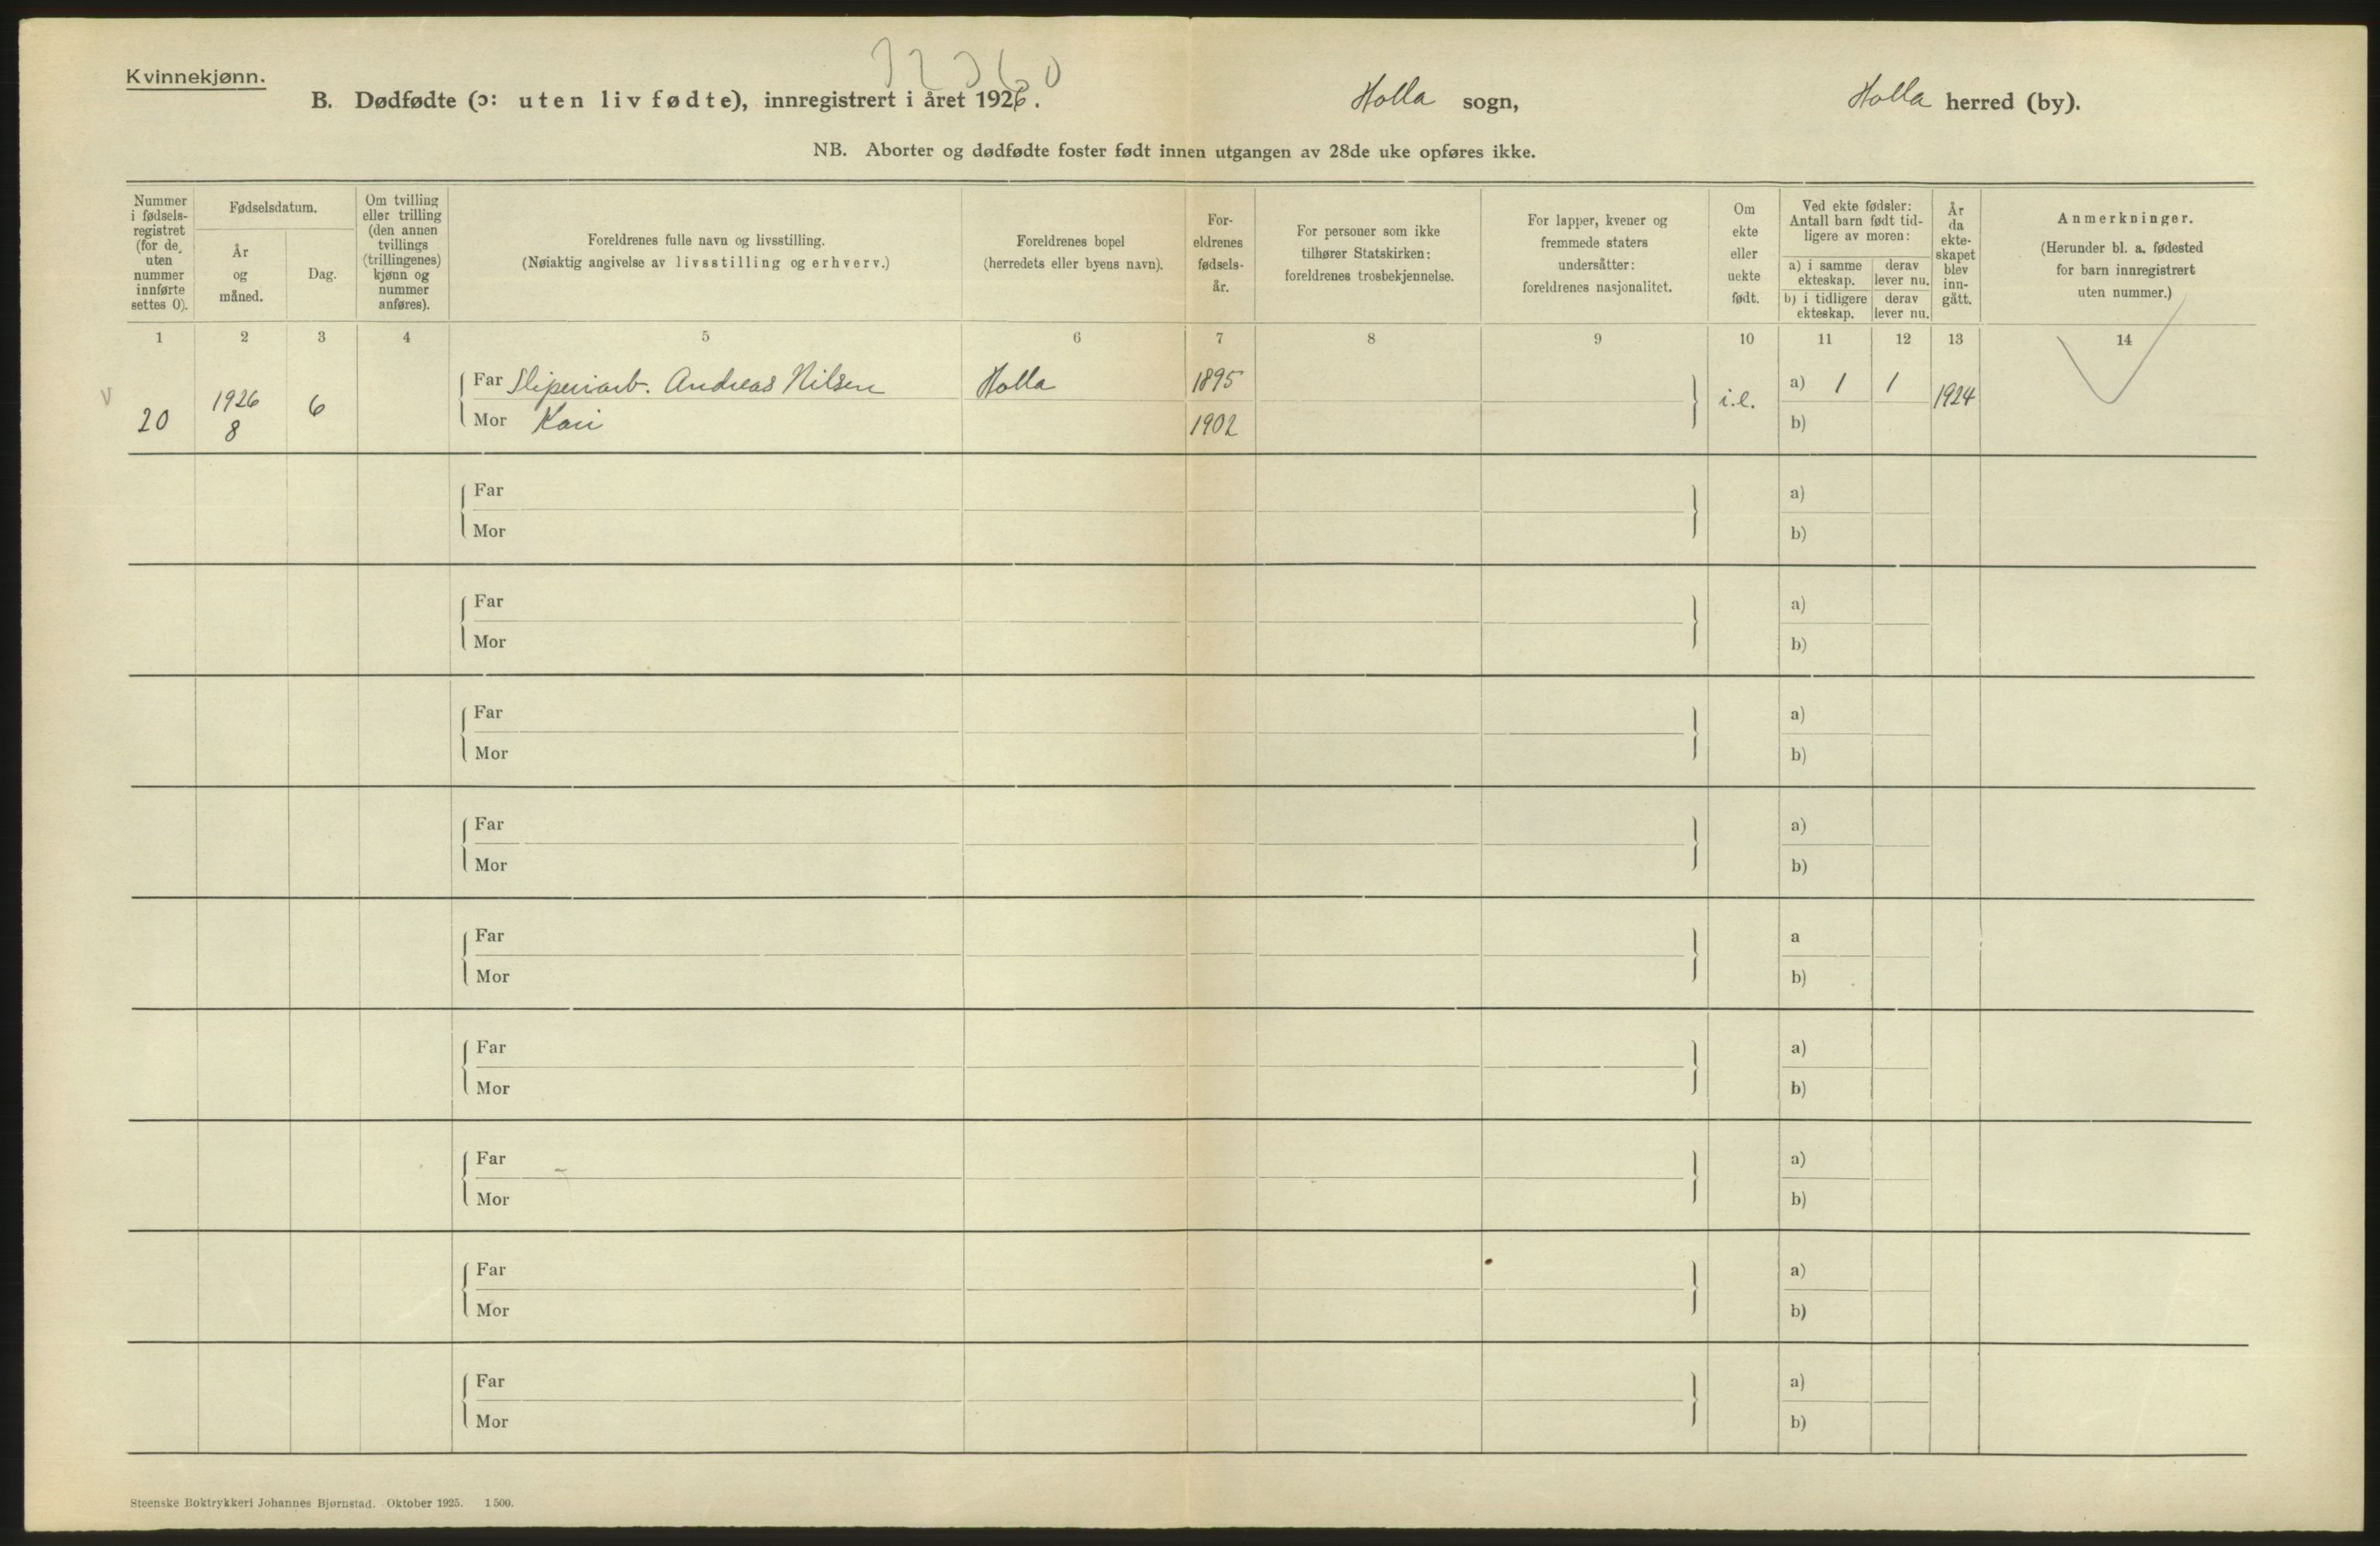 Kvinnekjønn.
B. Dødfødte (ɔ: uten liv fødte), innregistrert i året 1926.
Holla sogn,
Holla herred (by).
NB. Aborter og dødfødte foster født innen utgangen av 28de uke opføres ikke.
Nummer
i fødsels-
registret
(for de
uten
nummer
innførte
settes 0).
Fødselsdatum.
År
og
måned.
Dag.
Om tvilling
eller trilling
(den annen
tvillings
(trillingenes)
kjønn og
nummer
anføres).
Foreldrenes fulle navn og livsstilling.
(Nøiaktig angivelse av livsstilling og erhverv.)
Foreldrenes bopel
(herredets eller byens navn).
For-
eldrenes
fødsels-
år.
For personer som ikke
tilhører Statskirken:
foreldrenes trosbekjennelse.
For lapper, kvener og
fremmede staters
undersåtter:
foreldrenes nasjonalitet.
Om
ekte
eller
uekte
født.
Ved ekte fødsler:
Antall barn født tid-
ligere av moren:
a) i samme
ekteskap.
derav
lever nu.
b) i tidligere
ekteskap.
derav
lever nu.
År
da
ekte-
skapet
blev
inn-
gått.
Anmerkninger.
(Herunder bl. a. fødested
for barn innregistrert
uten nummer.)
1 2 3 4 5 6 7 8 9 10 11 12 13 14
Far Sliperiarb. Andreas Nilsen Holla 1895 a) 1 1
20 1926 8 6 i.e. 1924
Mor Kari 1902 b)
Far a)
Mor b)
Far a)
Mor b)
Far a)
Mor b)
Far a)
Mor b)
Far a
Mor b)
Far a)
Mor b)
Far a)
Mor b)
Far a)
Mor b)
Far a)
Mor b)
Steenske Boktrykkeri Johannes Bjørnstad. Oktober 1925. 1500.